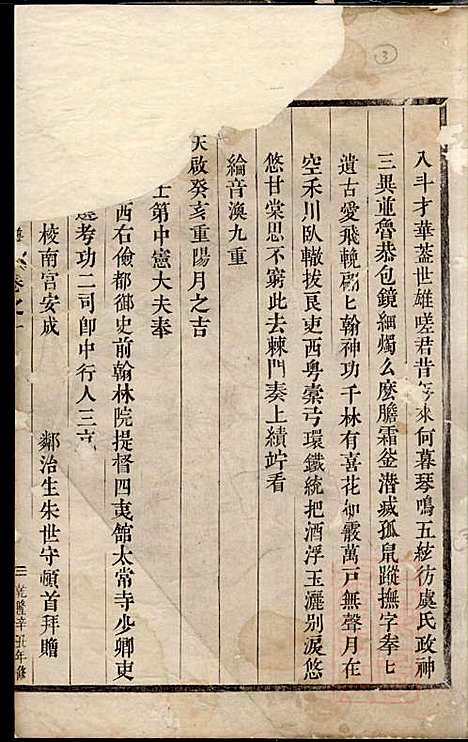 3
入斗才華蓋世雄嗟君昔年來何暮琴鳴五絃彷虞氏政神
三異並魯恭包鏡細燭么麼膽霜釜潛藏孤鼠蹤撫字拳匕
遺古愛飛輓鄰匕翰神功千林有喜花如霰萬戶無聲月在
空禾川臥轍拔艮吏西粵棠弓環鐵統把酒浮玉灑別淚悠
悠甘棠思不窮此去棘門奏上績竚看
綸音渙九重
天啟癸亥重陽月之吉
士第中憲大夫奉
西右僉都御史前翰林院提督四夷館太常寺少卿吏
考功二司郎中行人三
鄰治生朱世守頓首拜贈
卷之一
棱南宮安成
三
乾隆辛丑年修